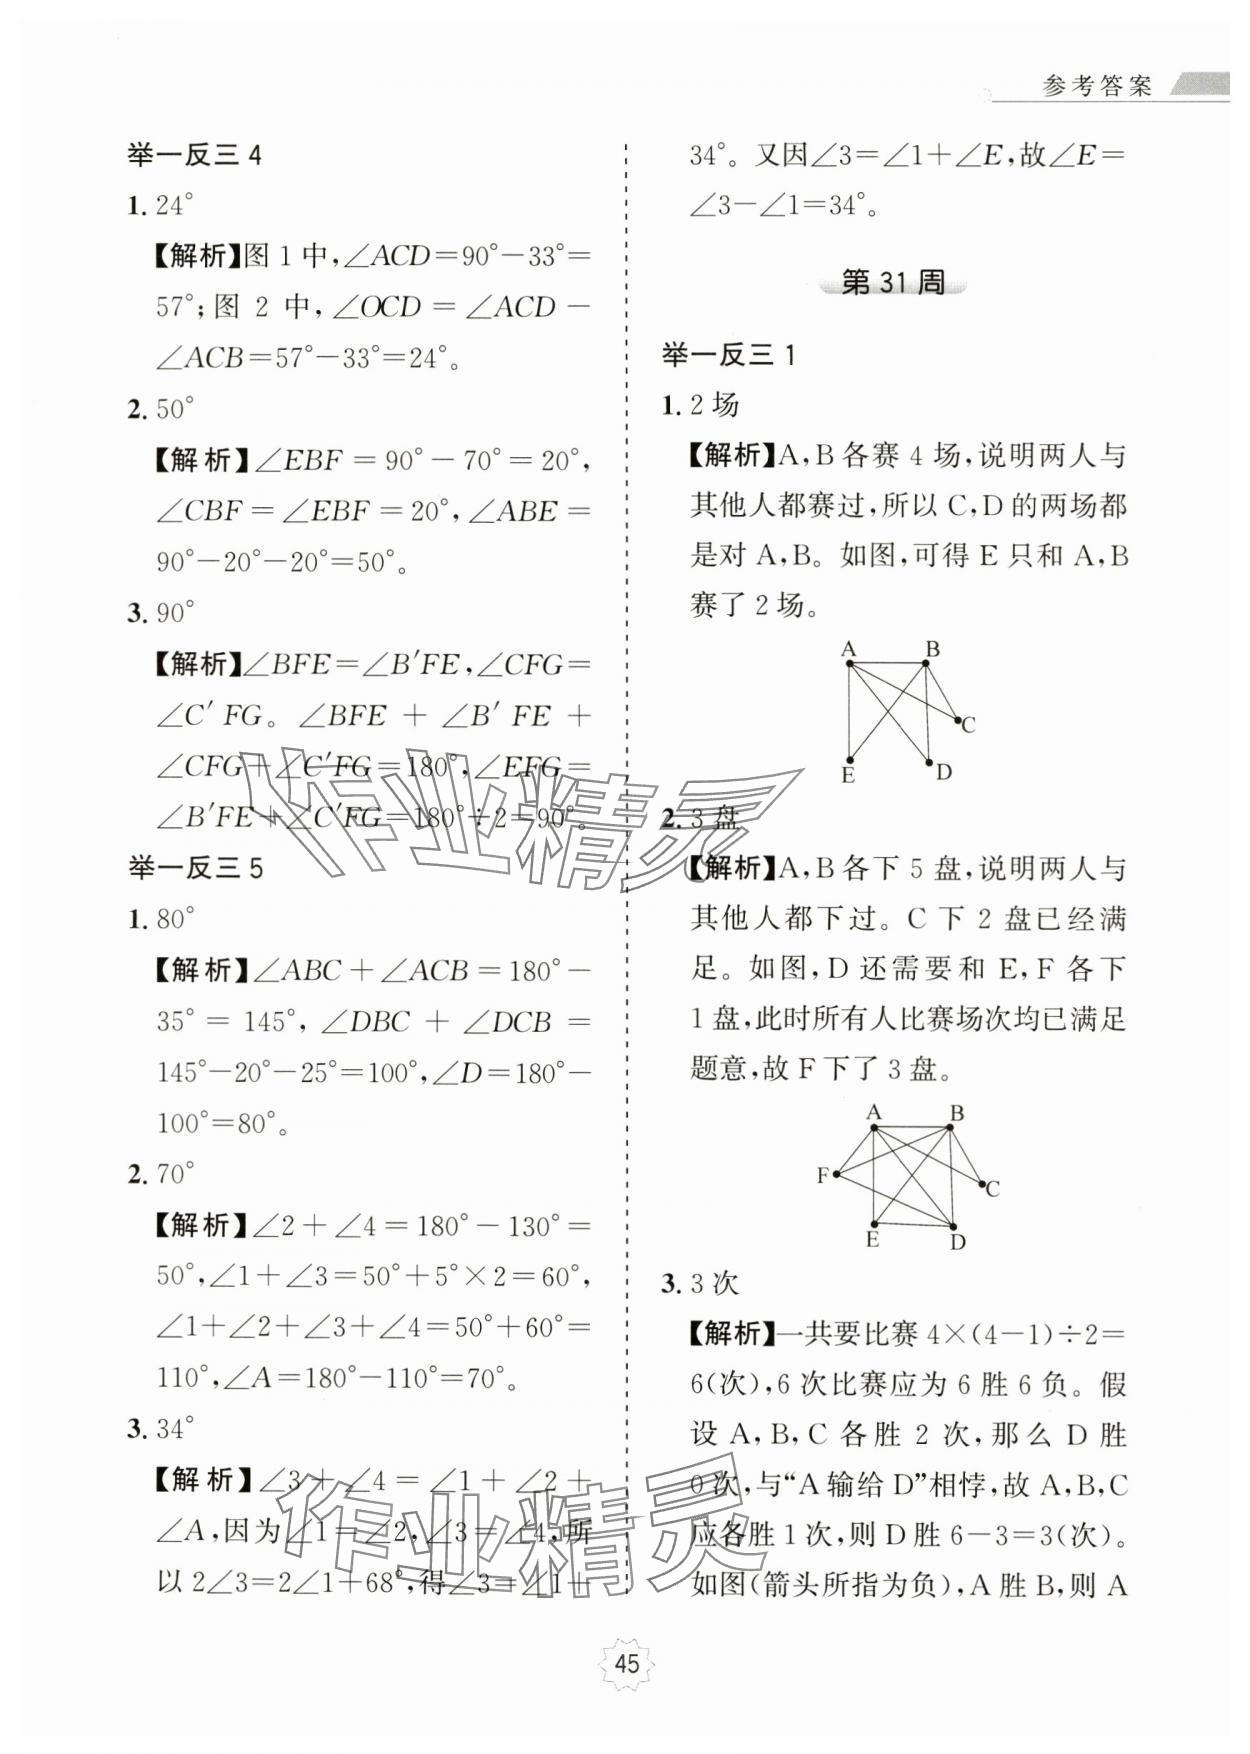 参考答案
举一反三4
1. 24°
【解析】图1中,∠ACD=90°-33°=
57°;图 2 中,∠OCD = ∠ACD -
∠ACB=57°-33°=24°。
2. 50°
【解析】∠EBF = 90° - 70° = 20°,
∠CBF = ∠EBF = 20°,∠ABE =
90°-20°-20°=50°。
3. 90°
【解析】∠BFE=∠B′FE,∠CFG=
∠C′FG。∠BFE + ∠B′FE +
∠CFG+∠C′FG=180°,∠EFG=
∠B′FE+∠C′FG=180°÷2=90°。
举一反三5
1. 80°
【解析】∠ABC+∠ACB=180°-
35° = 145°, ∠DBC + ∠DCB =
145°-20°-25°=100°,∠D=180°-
100°=80°。
2. 70°
【解析】∠2+∠4=180°-130°=
50°,∠1+∠3=50°+5°×2=60°,
∠1+∠2+∠3+∠4=50°+60°=
110°,∠A=180°-110°=70°。
3. 34°
【解析】∠3+∠4=∠1+∠2+
∠A,因为∠1=∠2,∠3=∠4,所
以2∠3=2∠1+68°,得∠3=∠1+
34°。又因∠3=∠1+∠E,故∠E=
∠3-∠1=34°。
第31周
举一反三1
1. 2场
【解析】A,B各赛4场,说明两人与
其他人都赛过,所以C,D的两场都
是对A,B。如图,可得E只和A,B
赛了2场。
A B
C
E D
2. 3盘
【解析】A,B各下5盘,说明两人与
其他人都下过。C下2盘已经满
足。如图,D还需要和E,F各下
1盘,此时所有人比赛场次均已满足
题意,故F下了3盘。
A B
F C
E D
3. 3次
【解析】一共要比赛4×(4-1)÷2=
6(次),6次比赛应为6胜6负。假
设A,B,C各胜2次,那么D胜
0次,与“A输给D”相悖,故A,B,C
应各胜1次,则D胜6-3=3(次)。
如图(箭头所指为负),A胜B,则A
45
作业精灵
作业精灵